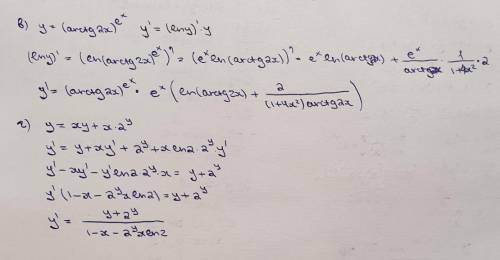 в) y = (arctg2x)^{e^x}   y' = (ln y)' · y
(ln y)' = (ln(arctg2x)^{e^x})' = (e^x ln(arctg2x))' = e^x ln(arctg2x) + \frac{e^x}{arctg2x} · \frac{1}{1+4x^2} · 2
y' = (arctg2x)^{e^x} · e^x (ln(arctg2x) + \frac{2}{(1+4x^2)arctg2x})
г) y = xy + x · 2^y
y' = y + xy' + 2^y + x ln2 · 2^y y'
y' - xy' - y' ln2 · 2^y · x = y + 2^y
y' (1 - x - 2^y x ln2) = y + 2^y
y' = \frac{y + 2^y}{1 - x - 2^y x ln2}